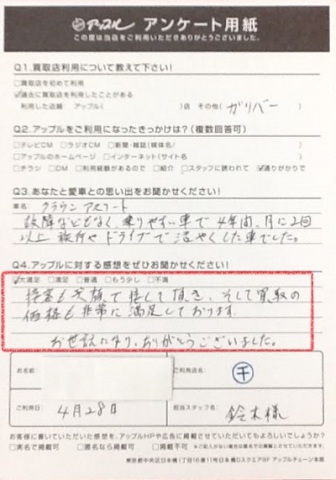 アップル アンケート用紙
この度は当店をご利用いただきありがとうございました。
Q1.買取店利用について教えて下さい!
□買取店を初めて利用
☑過去に買取店を利用したことがある
利用した店舗 アップル( )店 その他( ガリバー )
Q2.アップルをご利用になったきっかけは?(複数回答可)
□テレビCM □ラジオCM □新聞・雑誌(媒体名/ )
□アップルのホームページ □インターネット(サイト名 )
□チラシ □DM □利用経験があるので □紹介 □スタッフに誘われて ☑通りがかりで
Q3.あなたと愛車との思い出をお聞かせください!
車名 クラウン アスリート
故障などもなく、乗りやすい車で4年間、月に2回
以上旅行やドライブで活やくした車でした。
Q4.アップルに対する感想をぜひお聞かせください!
☑大満足 □満足 □普通 □もう少し □不満
接客も笑顔で接して頂き、そして買取の
価格も非常に満足しております。
お世話になり、ありがとうございました。
お名前
ご利用店名 千
ご利用日 4月28日
担当スタッフ名 鈴木様
お客様に書いていただいた感想を、アップルHPや広告に掲載させていただいてもよろしいでしょうか?
□実名で掲載可 □匿名なら掲載可 □掲載不可